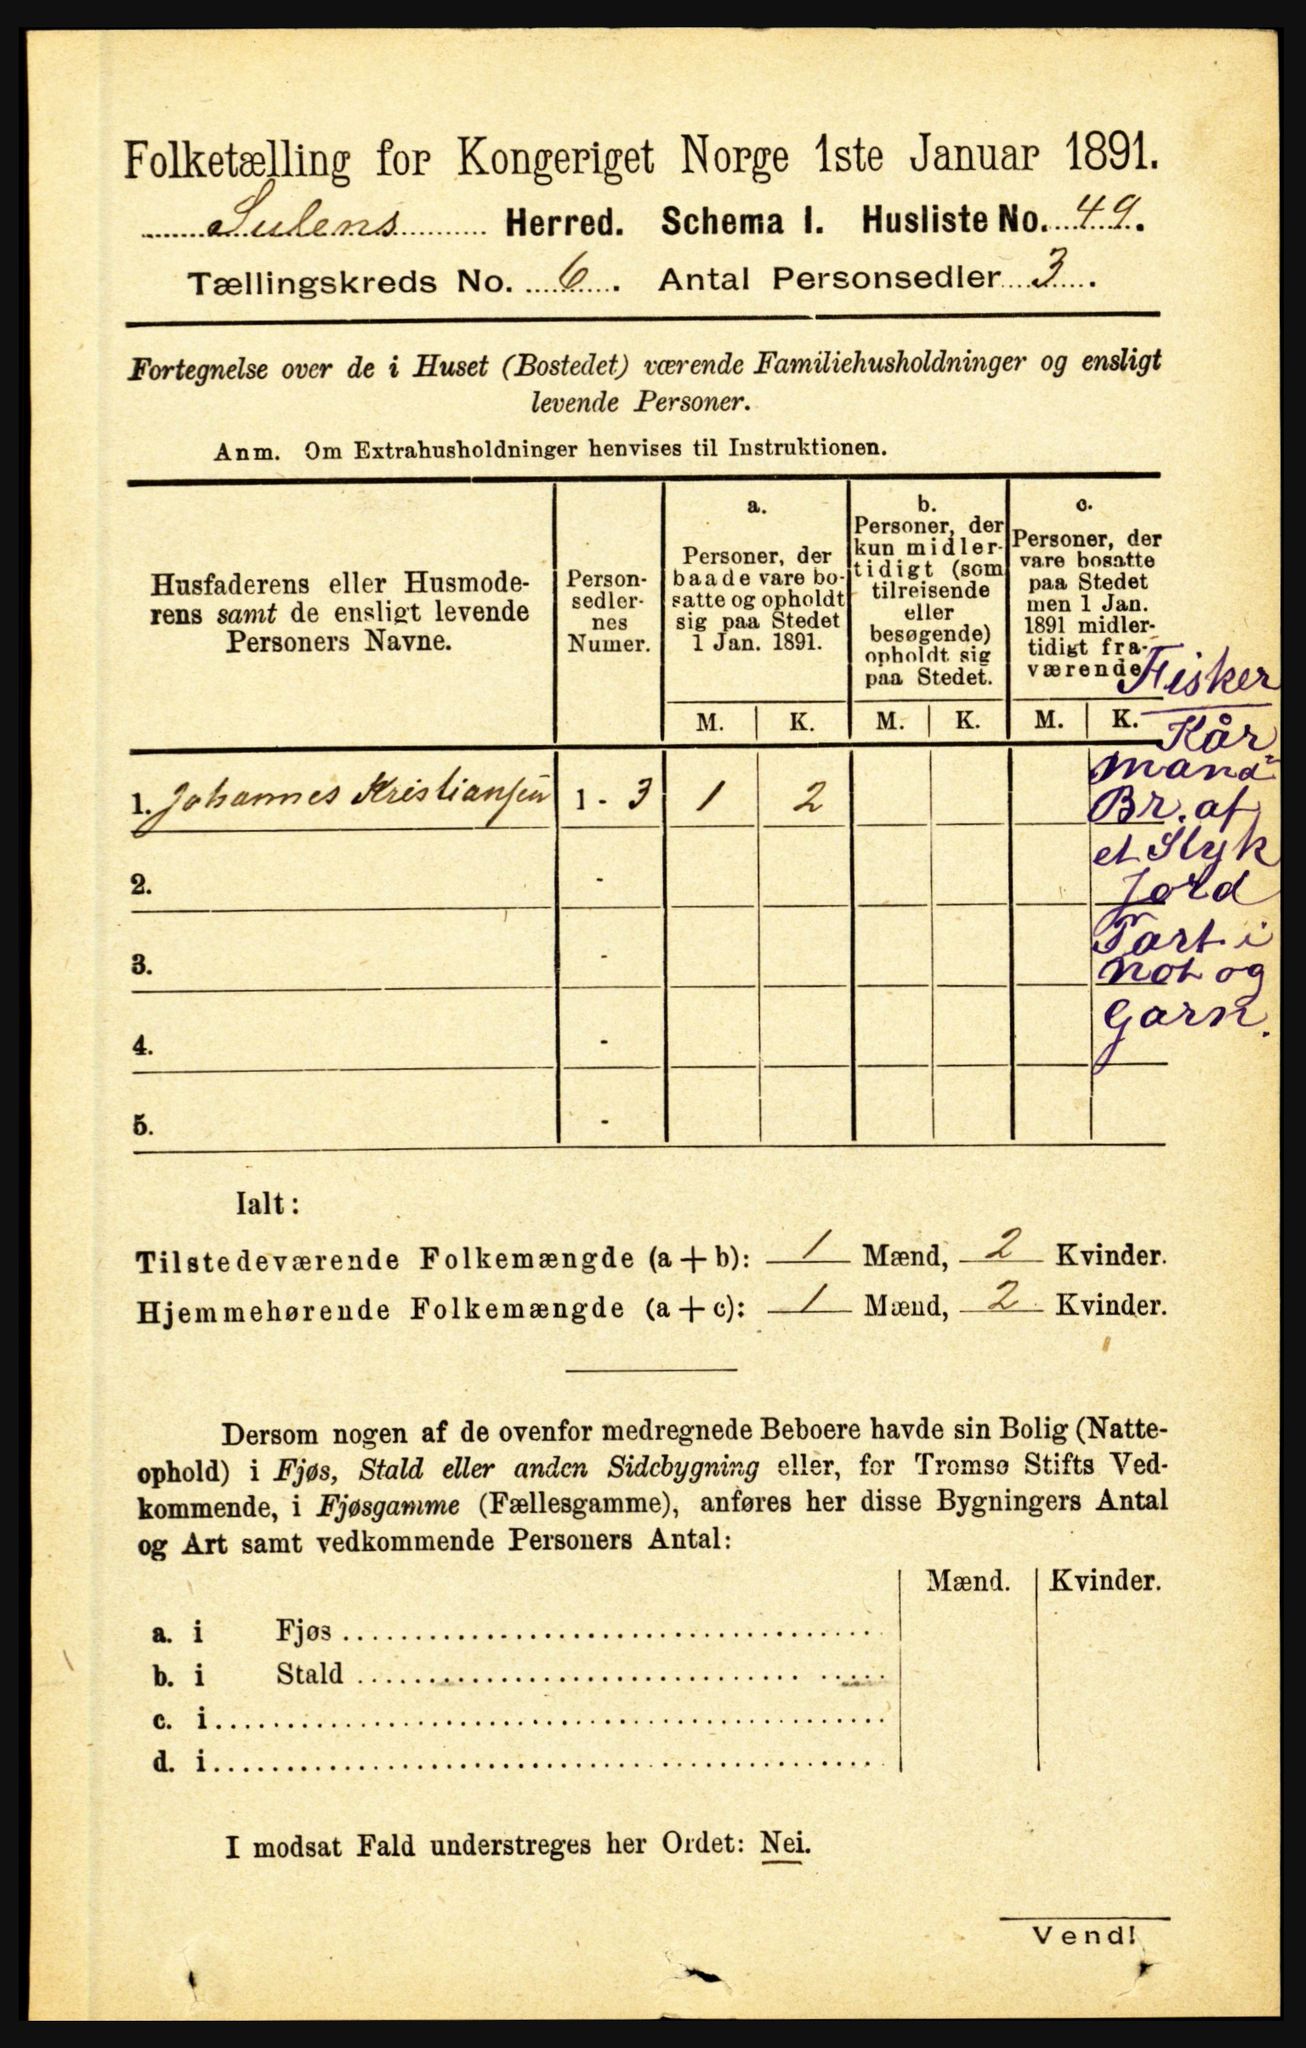 Folketælling for Kongeriget Norge 1ste Januar 1891.
Sulens Herred. Schema I. Husliste No. 49.
Tællingskreds No. 6. Antal Personsedler 3.
Fortegnelse over de i Huset (Bostedet) værende Familiehusholdninger og ensligt
levende Personer.
Anm. Om Extrahusholdninger henvises til Instruktionen.
Husfaderens eller Husmode-
rens samt de ensligt levende
Personers Navne.
Person-
sedler-
nes
Numer.
a.
Personer, der
baade vare bo-
satte og opholdt
sig paa Stedet
1 Jan. 1891.
b.
Personer, der
kun midler-
tidigt (som
tilreisende
eller
besøgende)
opholdt sig
paa Stedet.
c.
Personer, der
vare bosatte
paa Stedet
men 1 Jan.
1891 midler-
tidigt fra-
værende
M. K. M. K. M. K.
1. Johannes Kristiansen 1 - 3 1 2
2. -
3. -
4. -
5. -
Fisker
Kår
mand
Br. af
et Styk
Jord
Part i
Not og
Garn.
Ialt:
Tilstedeværende Folkemængde (a + b): 1 Mænd, 2 Kvinder.
Hjemmehørende Folkemængde (a + c): 1 Mænd, 2 Kvinder.
Dersom nogen af de ovenfor medregnede Beboere havde sin Bolig (Natte-
ophold) i Fjøs, Stald eller anden Sidebygning eller, for Tromsø Stifts Ved-
kommende, i Fjøsgamme (Fællesgamme), anføres her disse Bygningers Antal
og Art samt vedkommende Personers Antal:
Mænd. Kvinder.
a. i Fjøs
b. i Stald
c. i
d. i
I modsat Fald understreges her Ordet: Nei.
Vend!